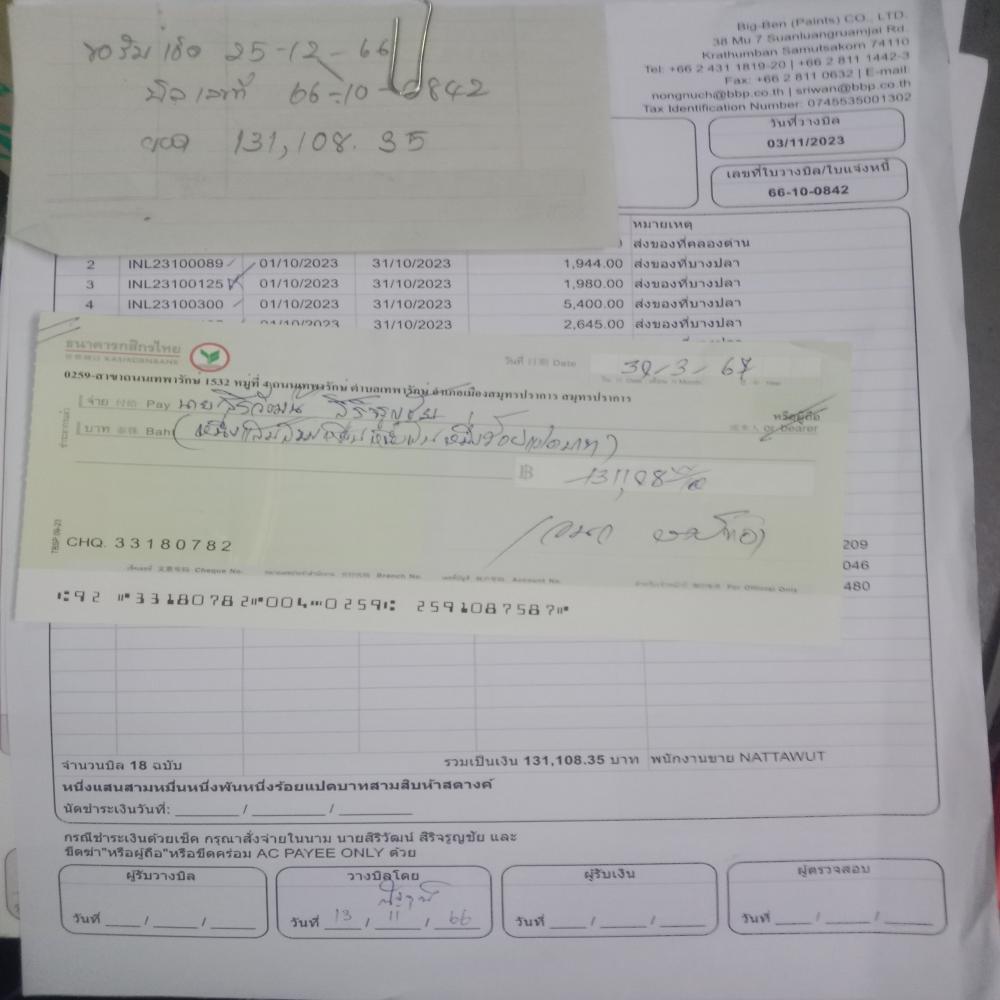 ขอรับเช็ค 25-12-66
บิลเลขที่ 66-10-0842
ยอด 131,108.35
Big-Ben (Paints) CO., LTD.
38 Mu 7 Suanluangruamjai Rd.
Krathumban Samutsakorn 74110
Tel: +66 2 431 1819-20 | +66 2 811 1442-3
Fax: +66 2 811 0632 | E-mail:
nongnuch@bbp.co.th | sriwan@bbp.co.th
Tax Identification Number: 0745535001302
วันที่วางบิล
03/11/2023
เลขที่ใบวางบิล/ใบแจ้งหนี้
66-10-0842
หมายเหตุ
ส่งของที่คลองด่าน
2 INL23100089 01/10/2023 31/10/2023 1,944.00 ส่งของที่บางปลา
3 INL23100125 01/10/2023 31/10/2023 1,980.00 ส่งของที่บางปลา
4 INL23100300 01/10/2023 31/10/2023 5,400.00 ส่งของที่บางปลา
04/10/2023 31/10/2023 2,645.00 ส่งของที่บางปลา
ธนาคารกสิกรไทย
KASIKORNBANK
วันที่ 日期 Date
0259-สาขาถนนเทพารักษ์ 1532 หมู่ที่ 4 ถนนเทพารักษ์ ตำบลเทพารักษ์ อำเภอเมืองสมุทรปราการ สมุทรปราการ
จ่าย 付给 Pay นายสิริวัฒน์ สิริจรูญชัย
หรือผู้ถือ
or bearer
บาท 泰铢 Baht (หนึ่งแสนสามหมื่นหนึ่งพันหนึ่งร้อยแปดบาท)
฿ 131,108
CHQ. 33180782
เช็คเลขที่ 支票号码 Cheque No. Branch No. Account No. For Official Only
⑆92 ⑈33180782⑈004⑉0259⑆ 2591087587⑈
209
046
480
จำนวนบิล 18 ฉบับ รวมเป็นเงิน 131,108.35 บาท พนักงานขาย NATTAWUT
หนึ่งแสนสามหมื่นหนึ่งพันหนึ่งร้อยแปดบาทสามสิบห้าสตางค์
นัดชำระเงินวันที่: ______ / ______ / ______
กรณีชำระเงินด้วยเช็ค กรุณาสั่งจ่ายในนาม นายสิริวัฒน์ สิริจรูญชัย และ
ขีดฆ่า"หรือผู้ถือ"หรือขีดคร่อม AC PAYEE ONLY ด้วย
ผู้รับวางบิล วางบิลโดย ผู้รับเงิน ผู้ตรวจสอบ
วันที่ ___ / ___ / ___ วันที่ 13 / 11 / 66 วันที่ ___ / ___ / ___ วันที่ ___ / ___ / ___